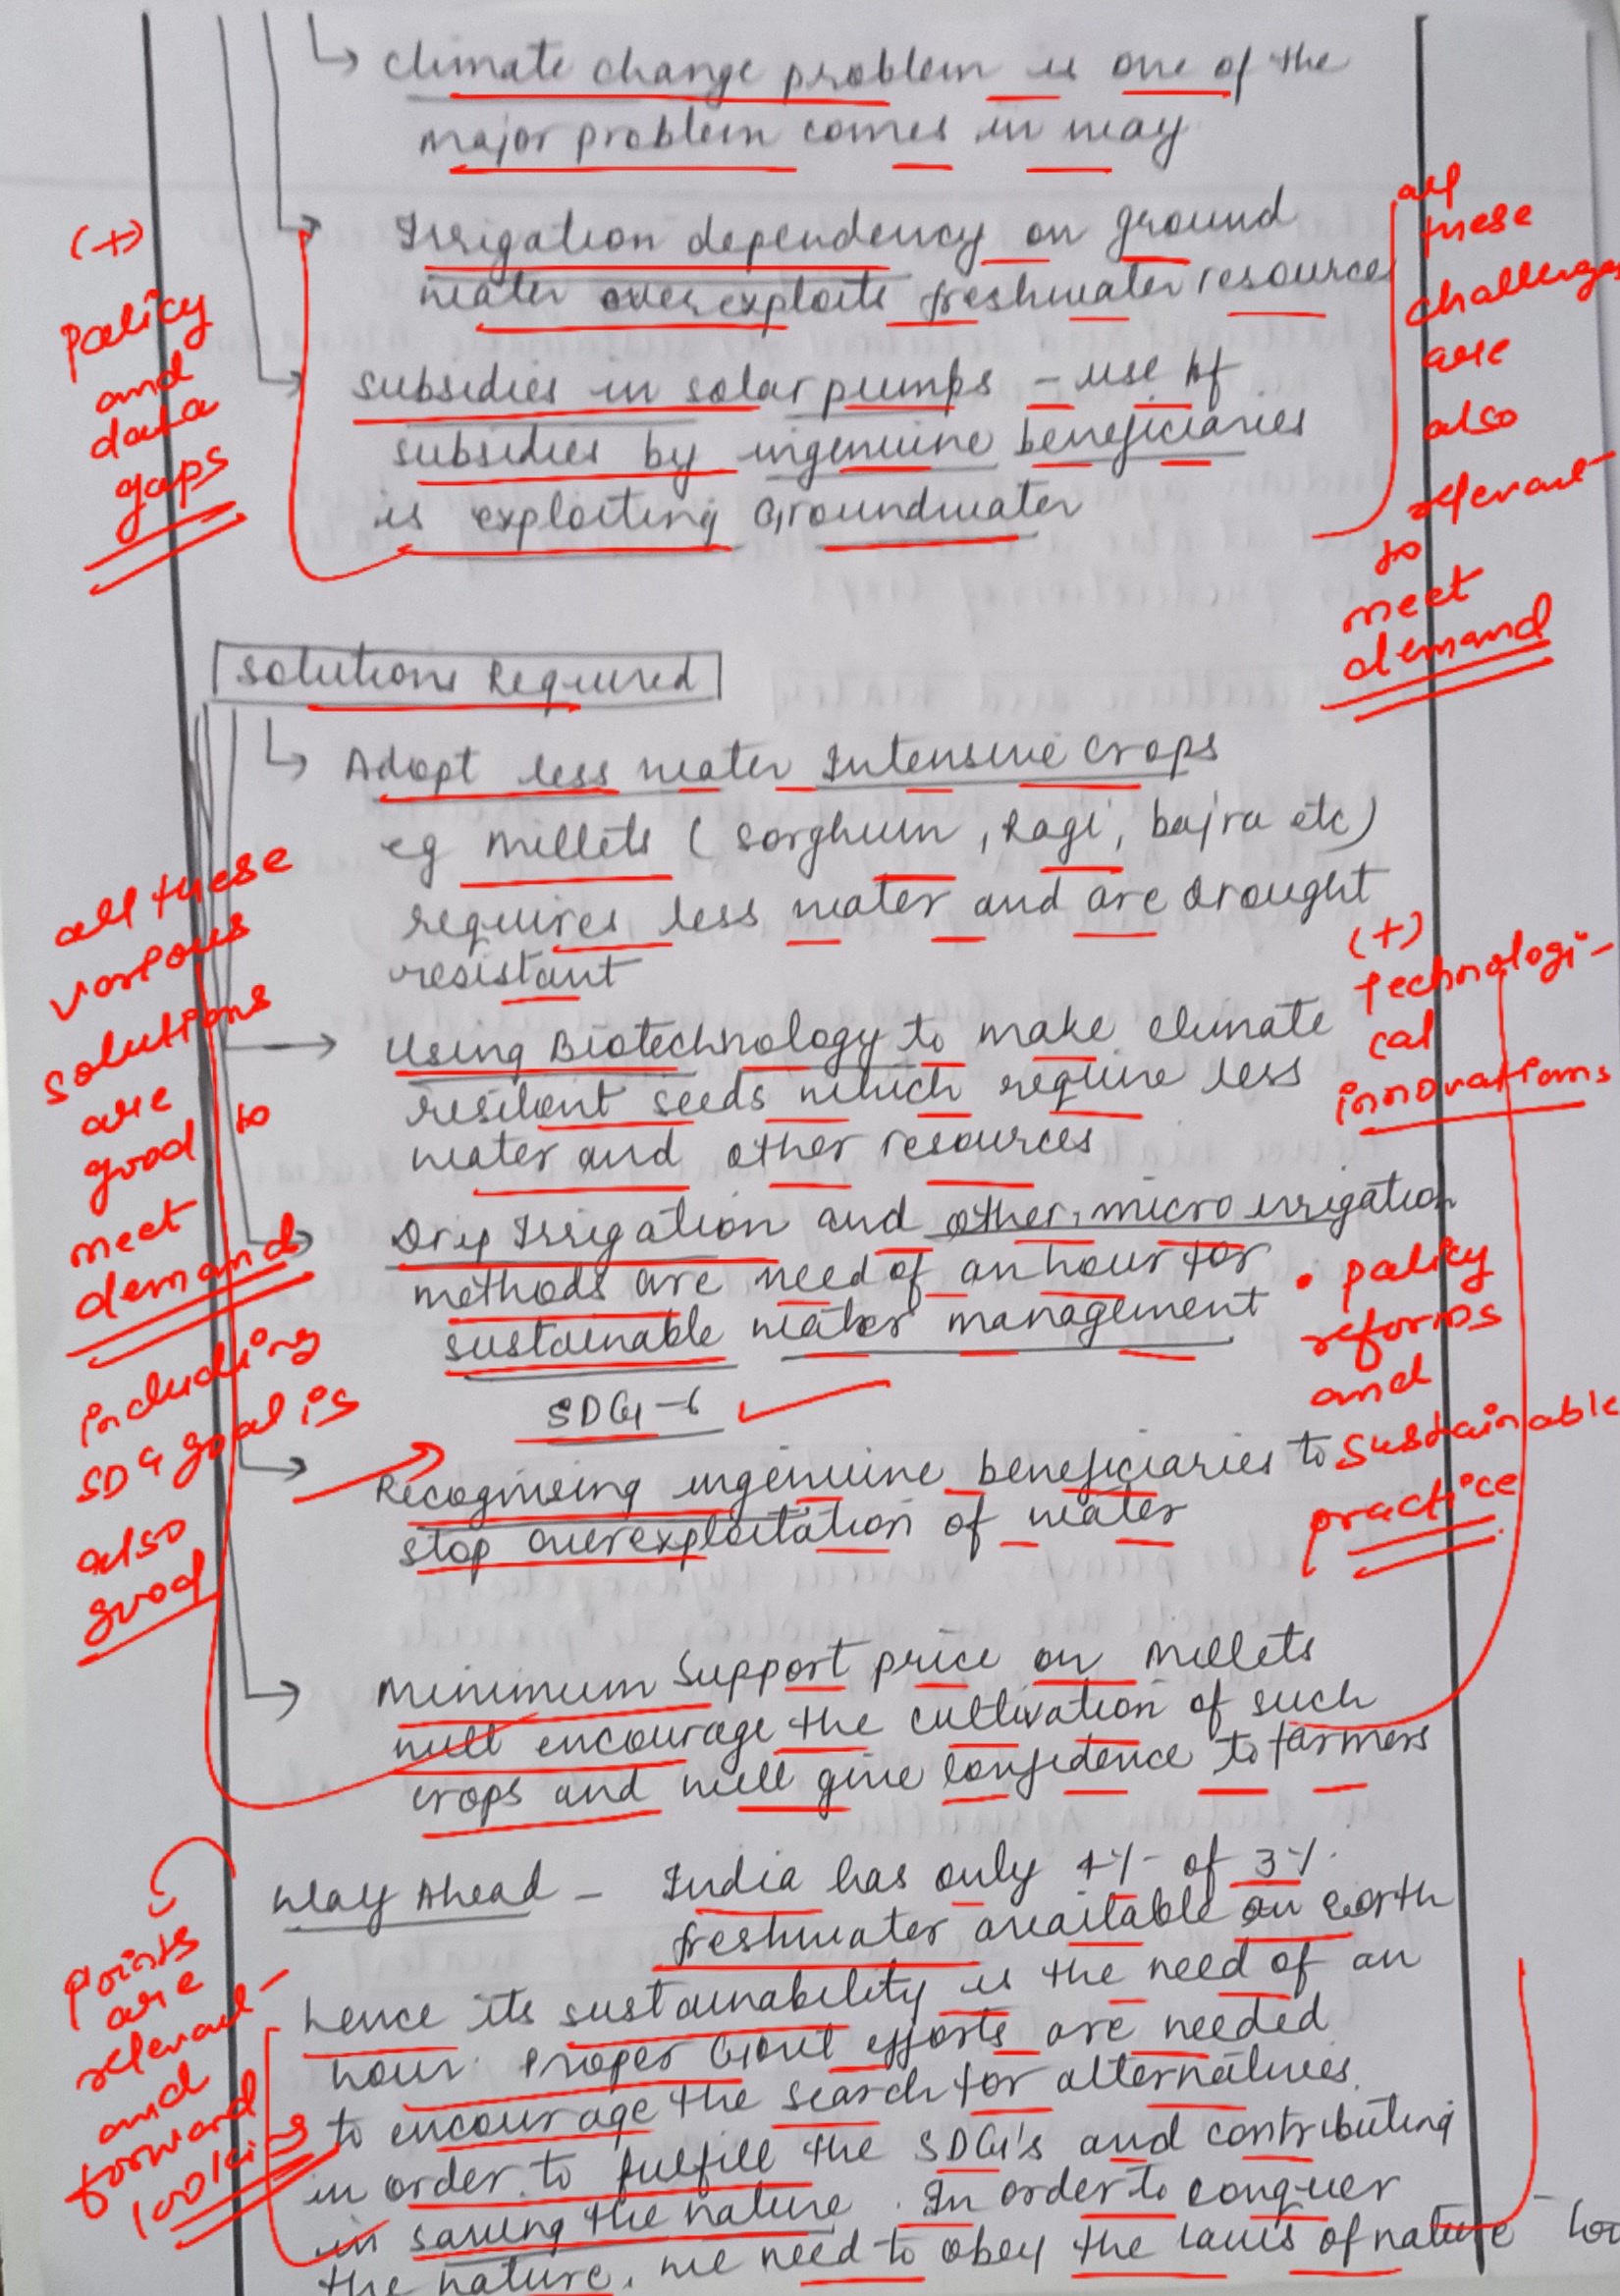 climate change problem is one of the
major problem comes in way
Irrigation dependency on ground
water over exploits freshwater resources
subsidies in solar pumps - use of
subsidies by ingenuine beneficiaries
is exploiting Groundwater
(+)
policy
and
data
gaps
all
these
challenges
are
also
relevant
to
meet
demand
Solutions Required
Adopt less water Intensive crops
eg millets (sorghum, Ragi, bajra etc)
requires less water and are drought
resistant
Using Biotechnology to make climate
resilient seeds which require less
water and other resources
Drip Irrigation and other micro irrigation
methods are need of an hour for
sustainable water management
SDG-6
Recognising ingenuine beneficiaries to
stop overexploitation of water
Minimum Support price on Millets
will encourage the cultivation of such
crops and will give confidence to farmers
all these
various
solutions
are
good to
meet
demand
including
SDG goal is
also
good
(+)
technologi-
cal
innovations
• policy
reforms
and
sustainable
practice
Way Ahead - India has only 4% of 3%
freshwater available on earth
hence its sustainability is the need of an
hour. Proper Govt efforts are needed
to encourage the search for alternatives
in order to fulfill the SDG's and contributing
in saving the nature. In order to conquer
the nature, we need to obey the laws of nature
points
are
relevant
and
forward
looking